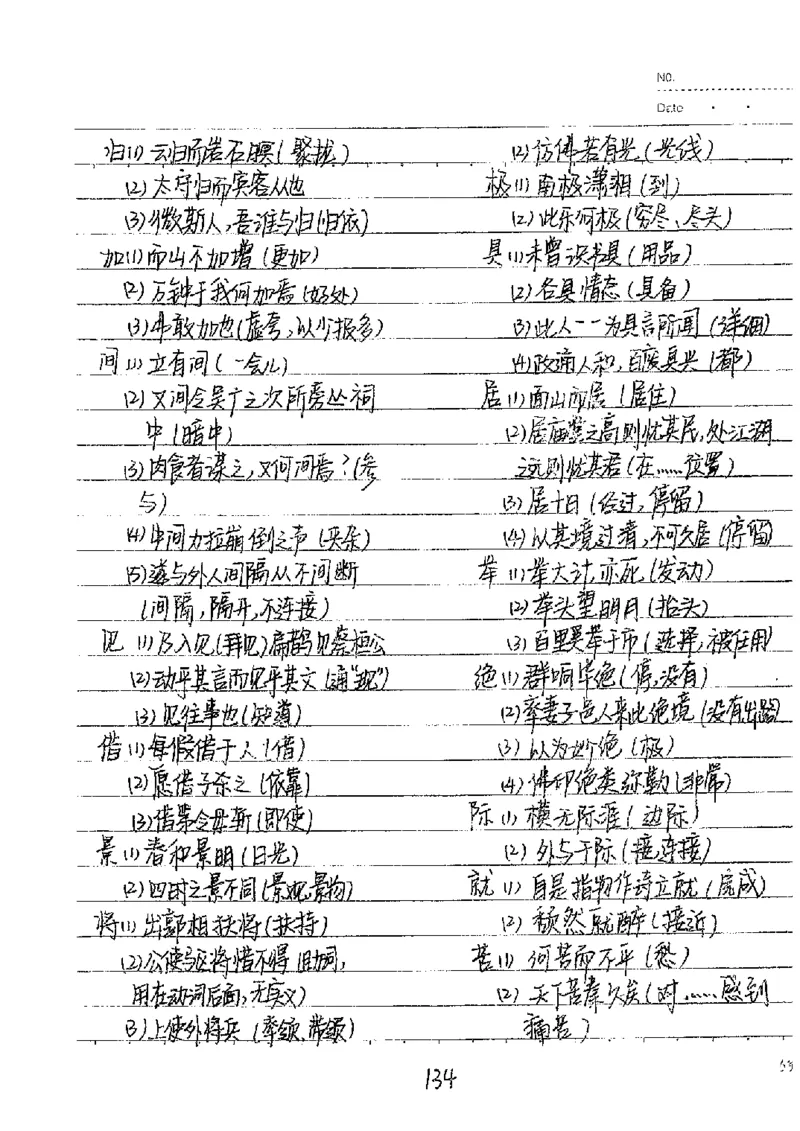 NO.
Date
归(1)云归而岩石暝(聚拢)
(2)太守归而宾客从也
(3)微斯人,吾谁与归(归依)
加(1)而山不加增(更加)
(2)万钟于我何加焉(好处)
(3)弗敢加也(虚夸,以少报多)
间(1)立有间(一会儿)
(2)又间令吴广之次所旁丛祠
中(暗中)
(3)肉食者谋之,又何间焉?(参
与)
(4)中间力拉崩倒之声(夹杂)
(5)遂与外人间隔从不间断
(间隔,隔开,不连接)
见(1)及入见(拜见)扁鹊见蔡桓公
(2)动乎其言而见乎其文(通“现”)
(3)见往事也(知道)
借(1)每假借于人(借)
(2)愿借子杀之(依靠)
(3)借第令毋斩(即使)
景(1)春和景明(日光)
(2)四时之景不同(景观,景物)
将(1)出郭相扶将(扶持)
(2)公使驱将惜不得(助词,
用在动词后面,无实义)
(3)上使外将兵(率领,带领)
(2)仿佛若有光(光线)
极(1)南极潇湘(到)
(2)此乐何极(穷尽、尽头)
具(1)未曾识书具(用品)
(2)各具情态(具备)
(3)此人一一为具言所闻(详细)
(4)政通人和,百废具兴(都)
居(1)面山而居(居住)
(2)居庙堂之高则忧其民,处江湖
远则忧其君(在……位置)
(3)居十日(经过,停留)
(4)以其境过清,不可久居(停留)
举(1)举大计亦死(发动)
(2)举头望明月(抬头)
(3)百里奚举于市(选择,被任用)
绝(1)群响毕绝(停,没有)
(2)率妻子邑人来此绝境(没有出路)
(3)以为妙绝(极)
(4)佛印绝类弥勒(非常)
际(1)横无际涯(边际)
(2)外与于际(接,连接)
就(1)自是指物作诗立就(完成)
(2)颓然就醉(接近)
苦(1)何苦而不平(愁)
(2)天下苦秦久矣(对……感到
痛苦)
134